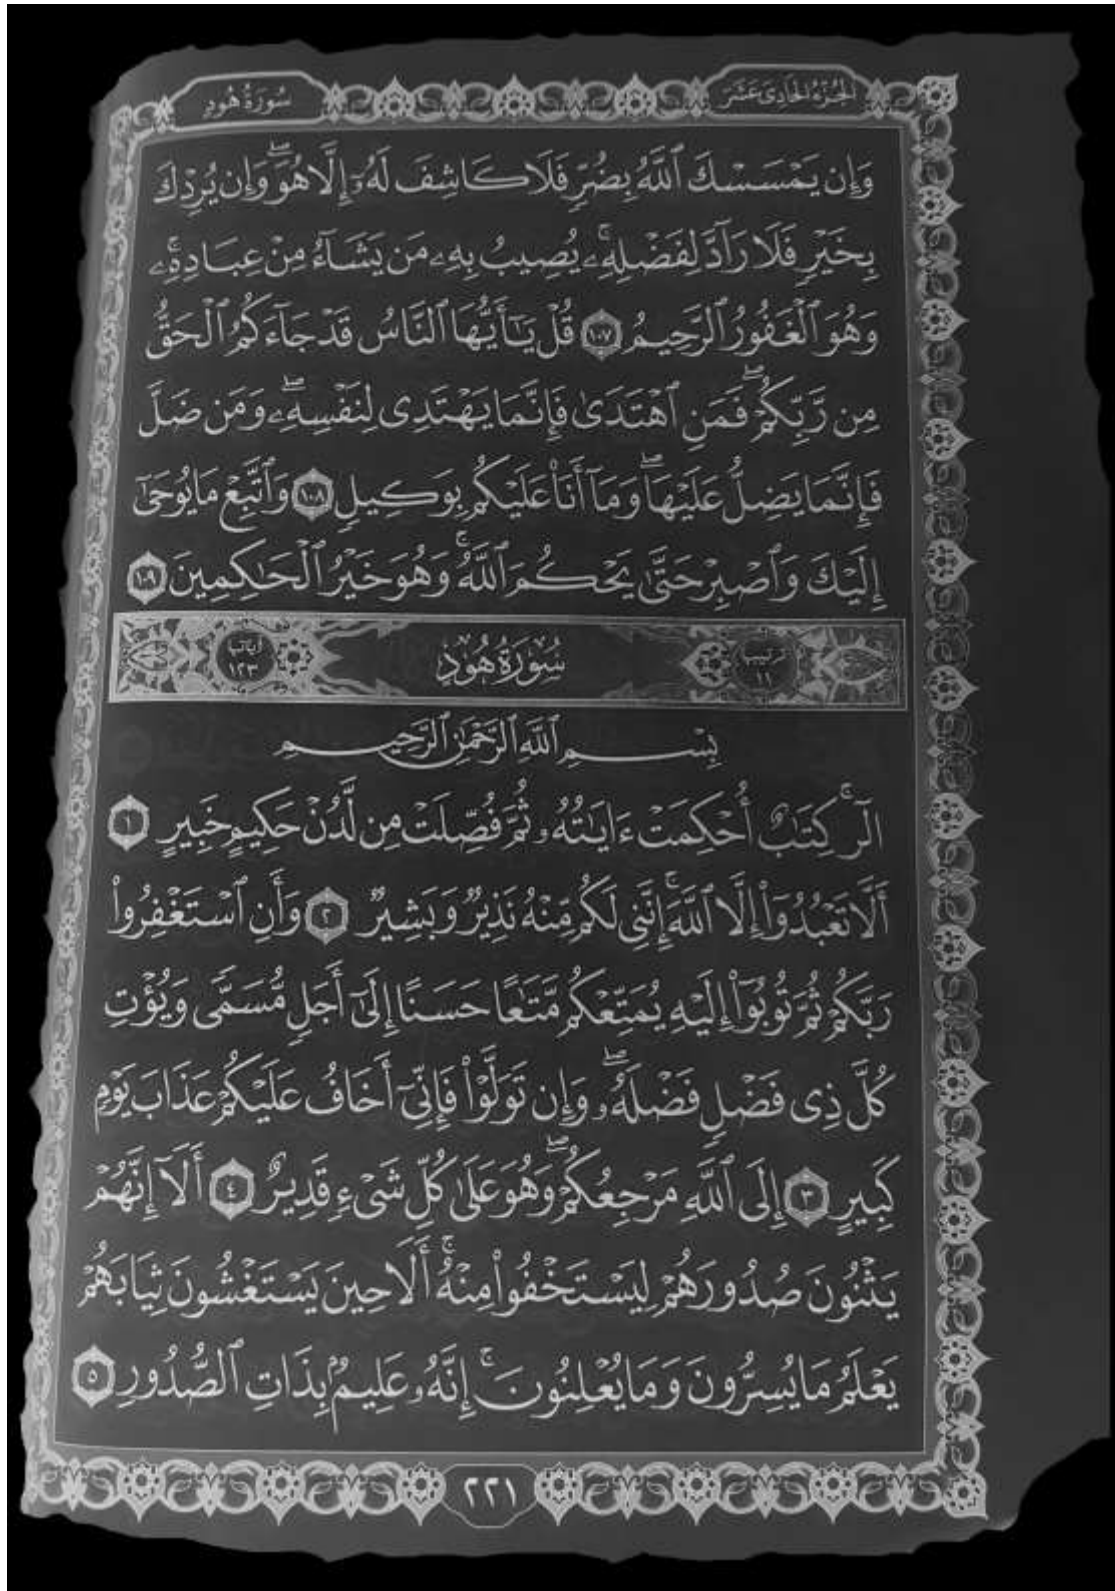 الجزء الحادي عشر
سورة هود
وَإِن يَمْسَسْكَ ٱللَّهُ بِضُرٍّ فَلَا كَاشِفَ لَهُۥٓ إِلَّا هُوَ ۖ وَإِن يُرِدْكَ
بِخَيْرٍ فَلَا رَآدَّ لِفَضْلِهِۦ ۚ يُصِيبُ بِهِۦ مَن يَشَآءُ مِنْ عِبَادِهِۦ ۚ
وَهُوَ ٱلْغَفُورُ ٱلرَّحِيمُ ١٠٧ قُلْ يَـٰٓأَيُّهَا ٱلنَّاسُ قَدْ جَآءَكُمُ ٱلْحَقُّ
مِن رَّبِّكُمْ ۖ فَمَنِ ٱهْتَدَىٰ فَإِنَّمَا يَهْتَدِى لِنَفْسِهِۦ ۖ وَمَن ضَلَّ
فَإِنَّمَا يَضِلُّ عَلَيْهَا ۖ وَمَآ أَنَا۠ عَلَيْكُم بِوَكِيلٍ ١٠٨ وَٱتَّبِعْ مَا يُوحَىٰٓ
إِلَيْكَ وَٱصْبِرْ حَتَّىٰ يَحْكُمَ ٱللَّهُ ۚ وَهُوَ خَيْرُ ٱلْحَـٰكِمِينَ ١٠٩
ترتيبها ١١ سُورَةُ هُودٍ آياتها ١٢٣
بِسْمِ ٱللَّهِ ٱلرَّحْمَـٰنِ ٱلرَّحِيمِ
الٓر ۚ كِتَـٰبٌ أُحْكِمَتْ ءَايَـٰتُهُۥ ثُمَّ فُصِّلَتْ مِن لَّدُنْ حَكِيمٍ خَبِيرٍ ١
أَلَّا تَعْبُدُوٓا۟ إِلَّا ٱللَّهَ ۚ إِنَّنِى لَكُم مِّنْهُ نَذِيرٌ وَبَشِيرٌ ٢ وَأَنِ ٱسْتَغْفِرُوا۟
رَبَّكُمْ ثُمَّ تُوبُوٓا۟ إِلَيْهِ يُمَتِّعْكُم مَّتَـٰعًا حَسَنًا إِلَىٰٓ أَجَلٍ مُّسَمًّى وَيُؤْتِ
كُلَّ ذِى فَضْلٍ فَضْلَهُۥ ۖ وَإِن تَوَلَّوْا۟ فَإِنِّىٓ أَخَافُ عَلَيْكُمْ عَذَابَ يَوْمٍ
كَبِيرٍ ٣ إِلَى ٱللَّهِ مَرْجِعُكُمْ ۖ وَهُوَ عَلَىٰ كُلِّ شَىْءٍ قَدِيرٌ ٤ أَلَآ إِنَّهُمْ
يَثْنُونَ صُدُورَهُمْ لِيَسْتَخْفُوا۟ مِنْهُ ۚ أَلَا حِينَ يَسْتَغْشُونَ ثِيَابَهُمْ
يَعْلَمُ مَا يُسِرُّونَ وَمَا يُعْلِنُونَ ۚ إِنَّهُۥ عَلِيمٌۢ بِذَاتِ ٱلصُّدُورِ ٥
٢٢١